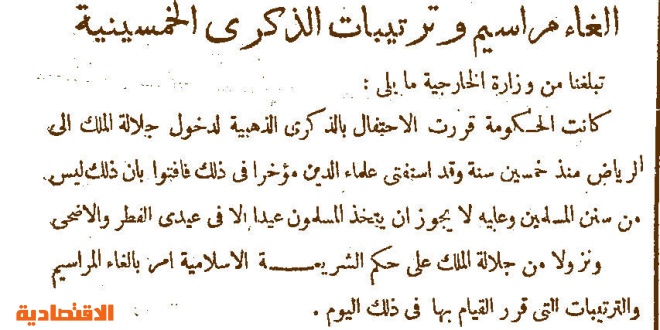 الغاء مراسيم وترتيبات الذكرى الخمسينية
تبلغنا من وزارة الخارجية ما يلى :
كانت الحكومة قررت الاحتفال بالذكرى الذهبية لدخول جلالة الملك الى
الرياض منذ خمسين سنة وقد استفتى علماء الدين مؤخرا فى ذلك فافتوا بان ذلك ليس
من سنن المسلمين وعليه لا يجوز ان يتخذ المسلمون عيدا الا فى عيدى الفطر والاضحى
ونزولا من جلالة الملك على حكم الشريعة الاسلامية امر بالغاء المراسيم
والترتيبات التى قرر القيام بها فى ذلك اليوم .
الاقتصادية